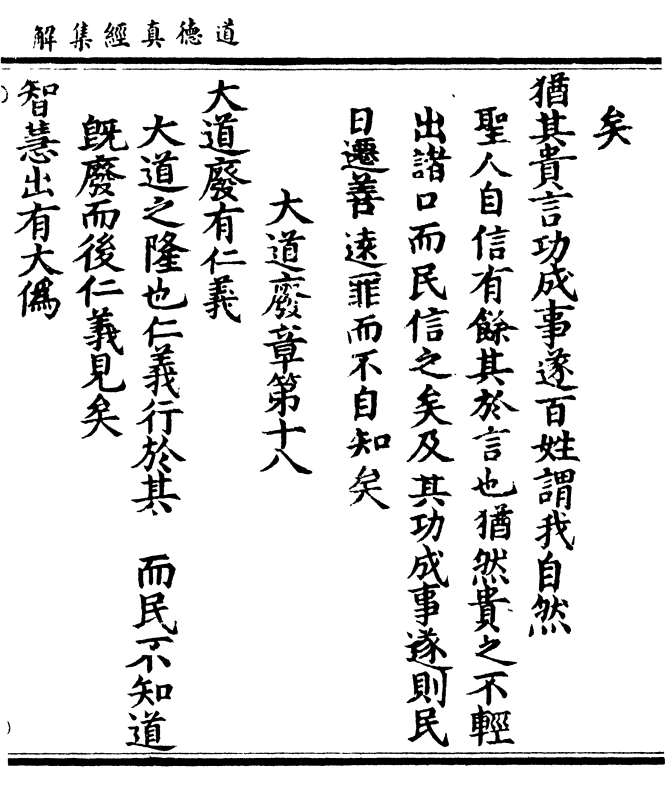 道德真經集解
矣
猶其貴言功成事遂百姓謂我自然
聖人自信有餘其於言也猶然貴之不輕
出諸口而民信之矣及其功成事遂則民
日遷善遠罪而不自知矣
大道廢章第十八
大道廢有仁義
大道之隆也仁義行於其 而民不知道
既廢而後仁義見矣
智慧出有大偽